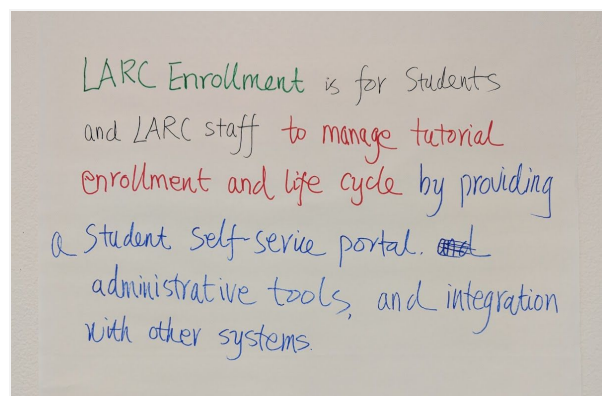 LARC Enrollment is for Students
and LARC staff to manage tutorial
enrollment and life cycle by providing
a student self-service portal.
administrative tools, and integration
with other systems.